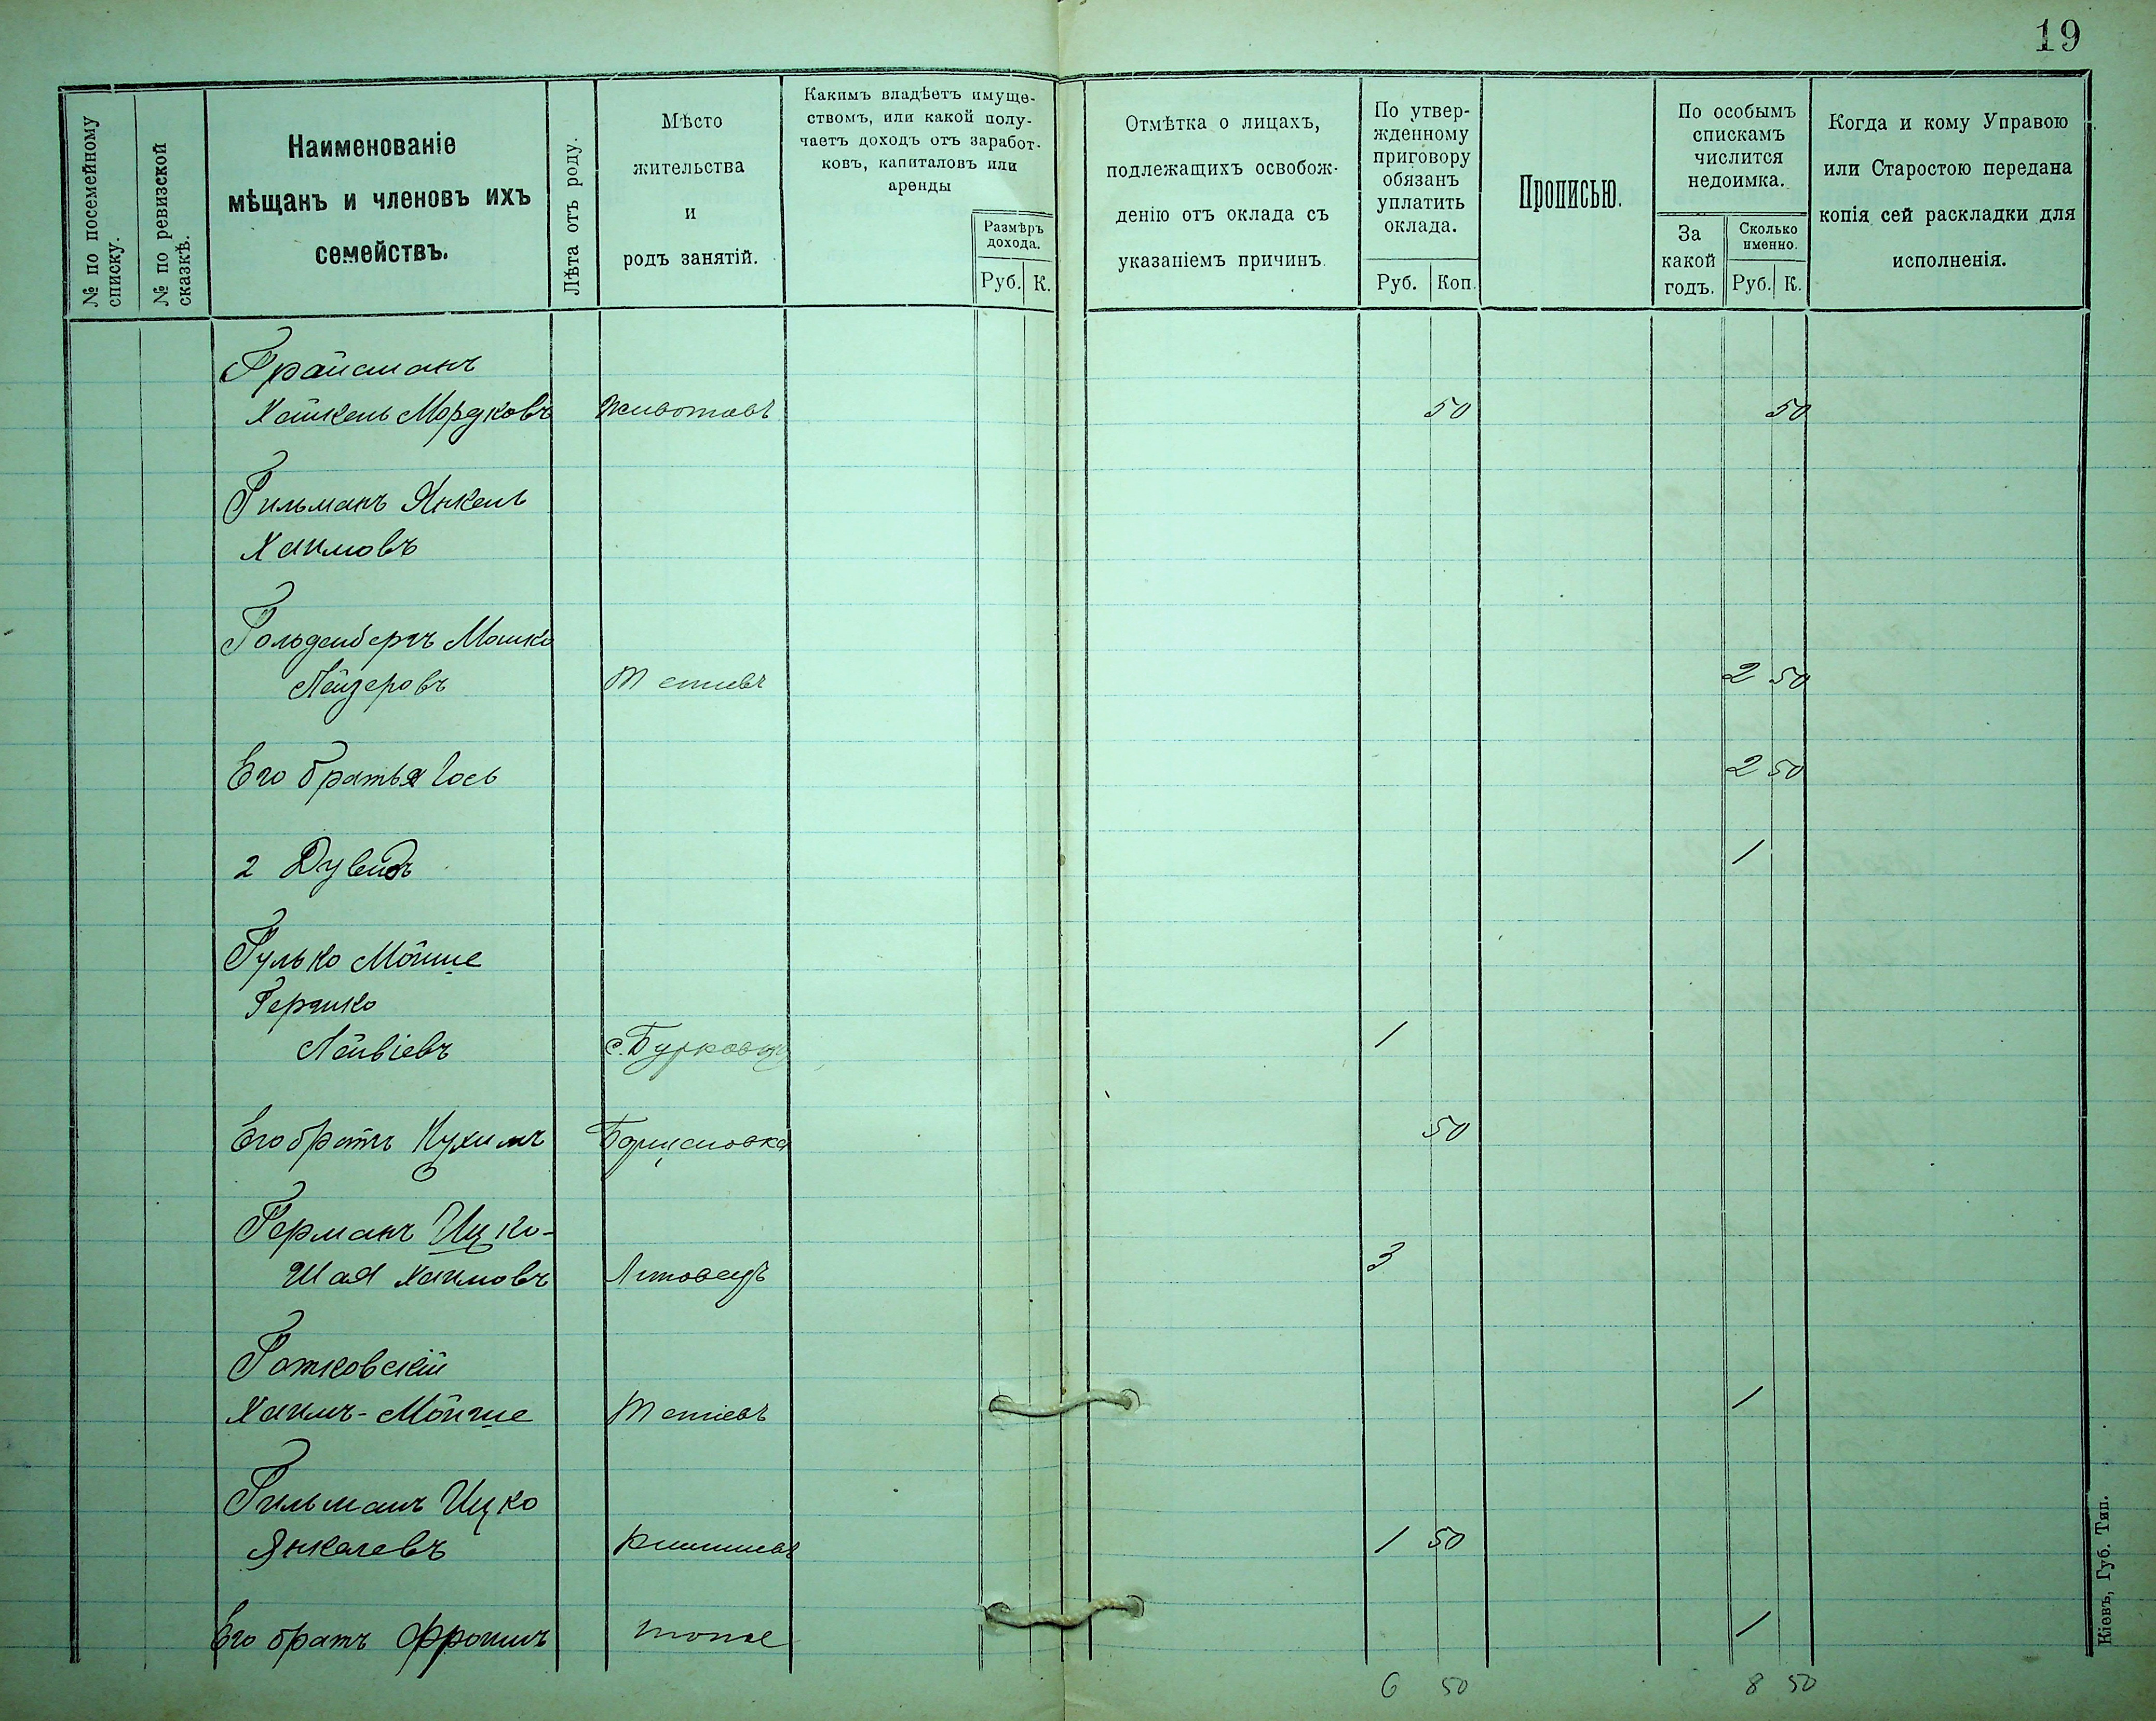 19
№ по посемейному
списку.
№ по ревизской
сказкѣ.
Наименованіе
мѣщанъ и членовъ ихъ
семействъ.
Лѣта отъ роду.
Мѣсто
жительства
и
родъ занятій.
Какимъ владѣетъ имуще-
ствомъ, или какой полу-
чаетъ доходъ отъ заработ-
ковъ, капиталовъ или
аренды
Размѣръ
дохода.
Руб. К.
Отмѣтка о лицахъ,
подлежащихъ освобож-
денію отъ оклада съ
указаніемъ причинъ.
По утвер-
жденному
приговору
обязанъ
уплатить
оклада.
Руб. Коп.
Прописью.
По особымъ
спискамъ
числится
недоимка.
За
какой
годъ.
Сколько
именно.
Руб. К.
Когда и кому Управою
или Старостою передана
копія сей раскладки для
исполненія.
Грайсманъ
Хайкель Мордковъ Животовъ 50 50
Гильманъ Янкель
Хаимовъ
Гольденбергъ Мошко
Лейзеровъ Тетіевъ 2 50
Его братья Іось 2 50
2 Дувидъ 1
Гулько Мойше
Гершко
Лейвіевъ с. Бурковцы 1
Его братъ Нухимъ Борщаговка 50
Германъ Ицко-
Шая Хаимовъ Литовецъ 3
Готковскій
Хаимъ-Мойше Тетіевъ 1
Гильманъ Ицко
Янкелевъ Кишиневъ 1 50
Его братъ Фроимъ тоже 1
6 50 8 50
Кіевъ, Губ. Тип.